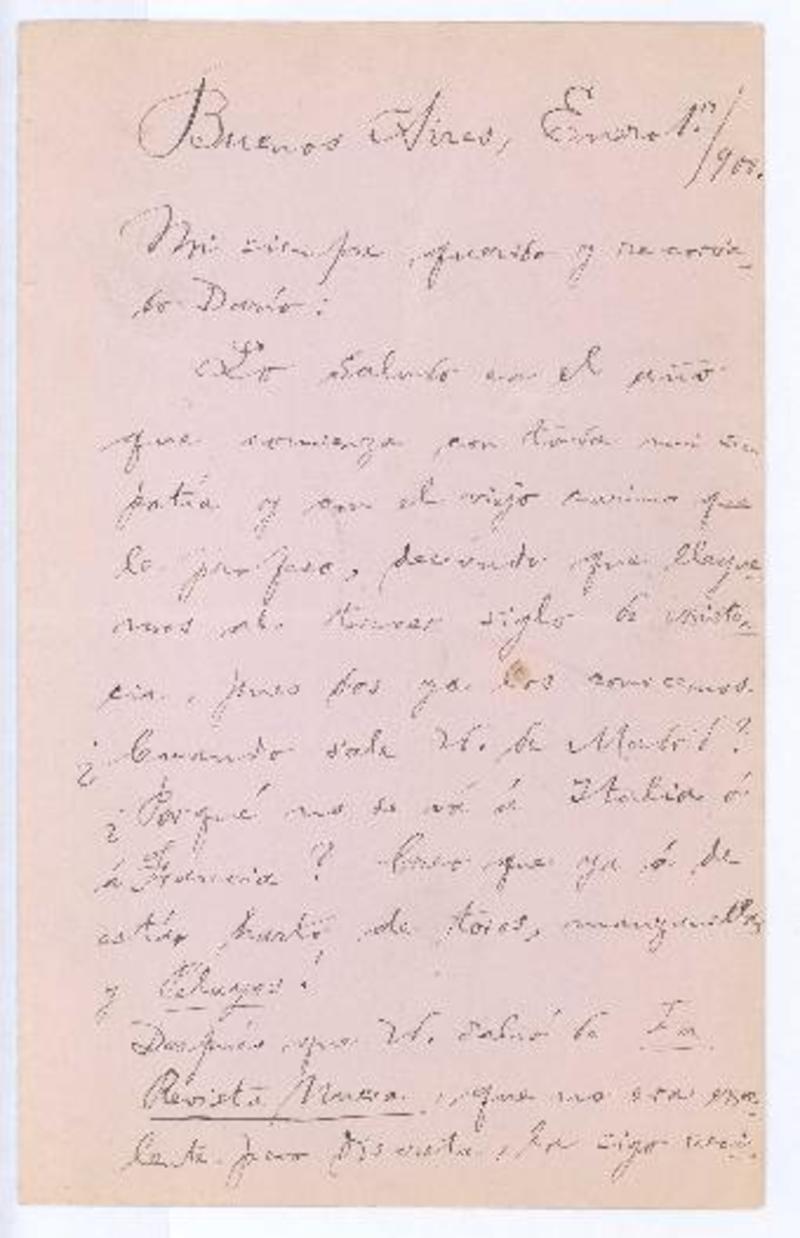 Buenos Aires, Enero 1.º/900.
Mi siempre querido y recorda-
do Darío:
Lo saludo en el año
que comienza con toda mi sim-
patía y con el viejo cariño que
le profeso, deseando que llegue-
mos al tercer siglo de existen-
cia, pues dos ya los conocemos.
¿Cuando sale Vd. de Madrid?
¿Porqué no se vá á Italia ó
á Francia? Creo que ya á de
estár harto de toros, manzanilla
y Pelayos!
Después que Vd. salió de La
Revista Nueva, que no era exce-
lente pero discreta, ha